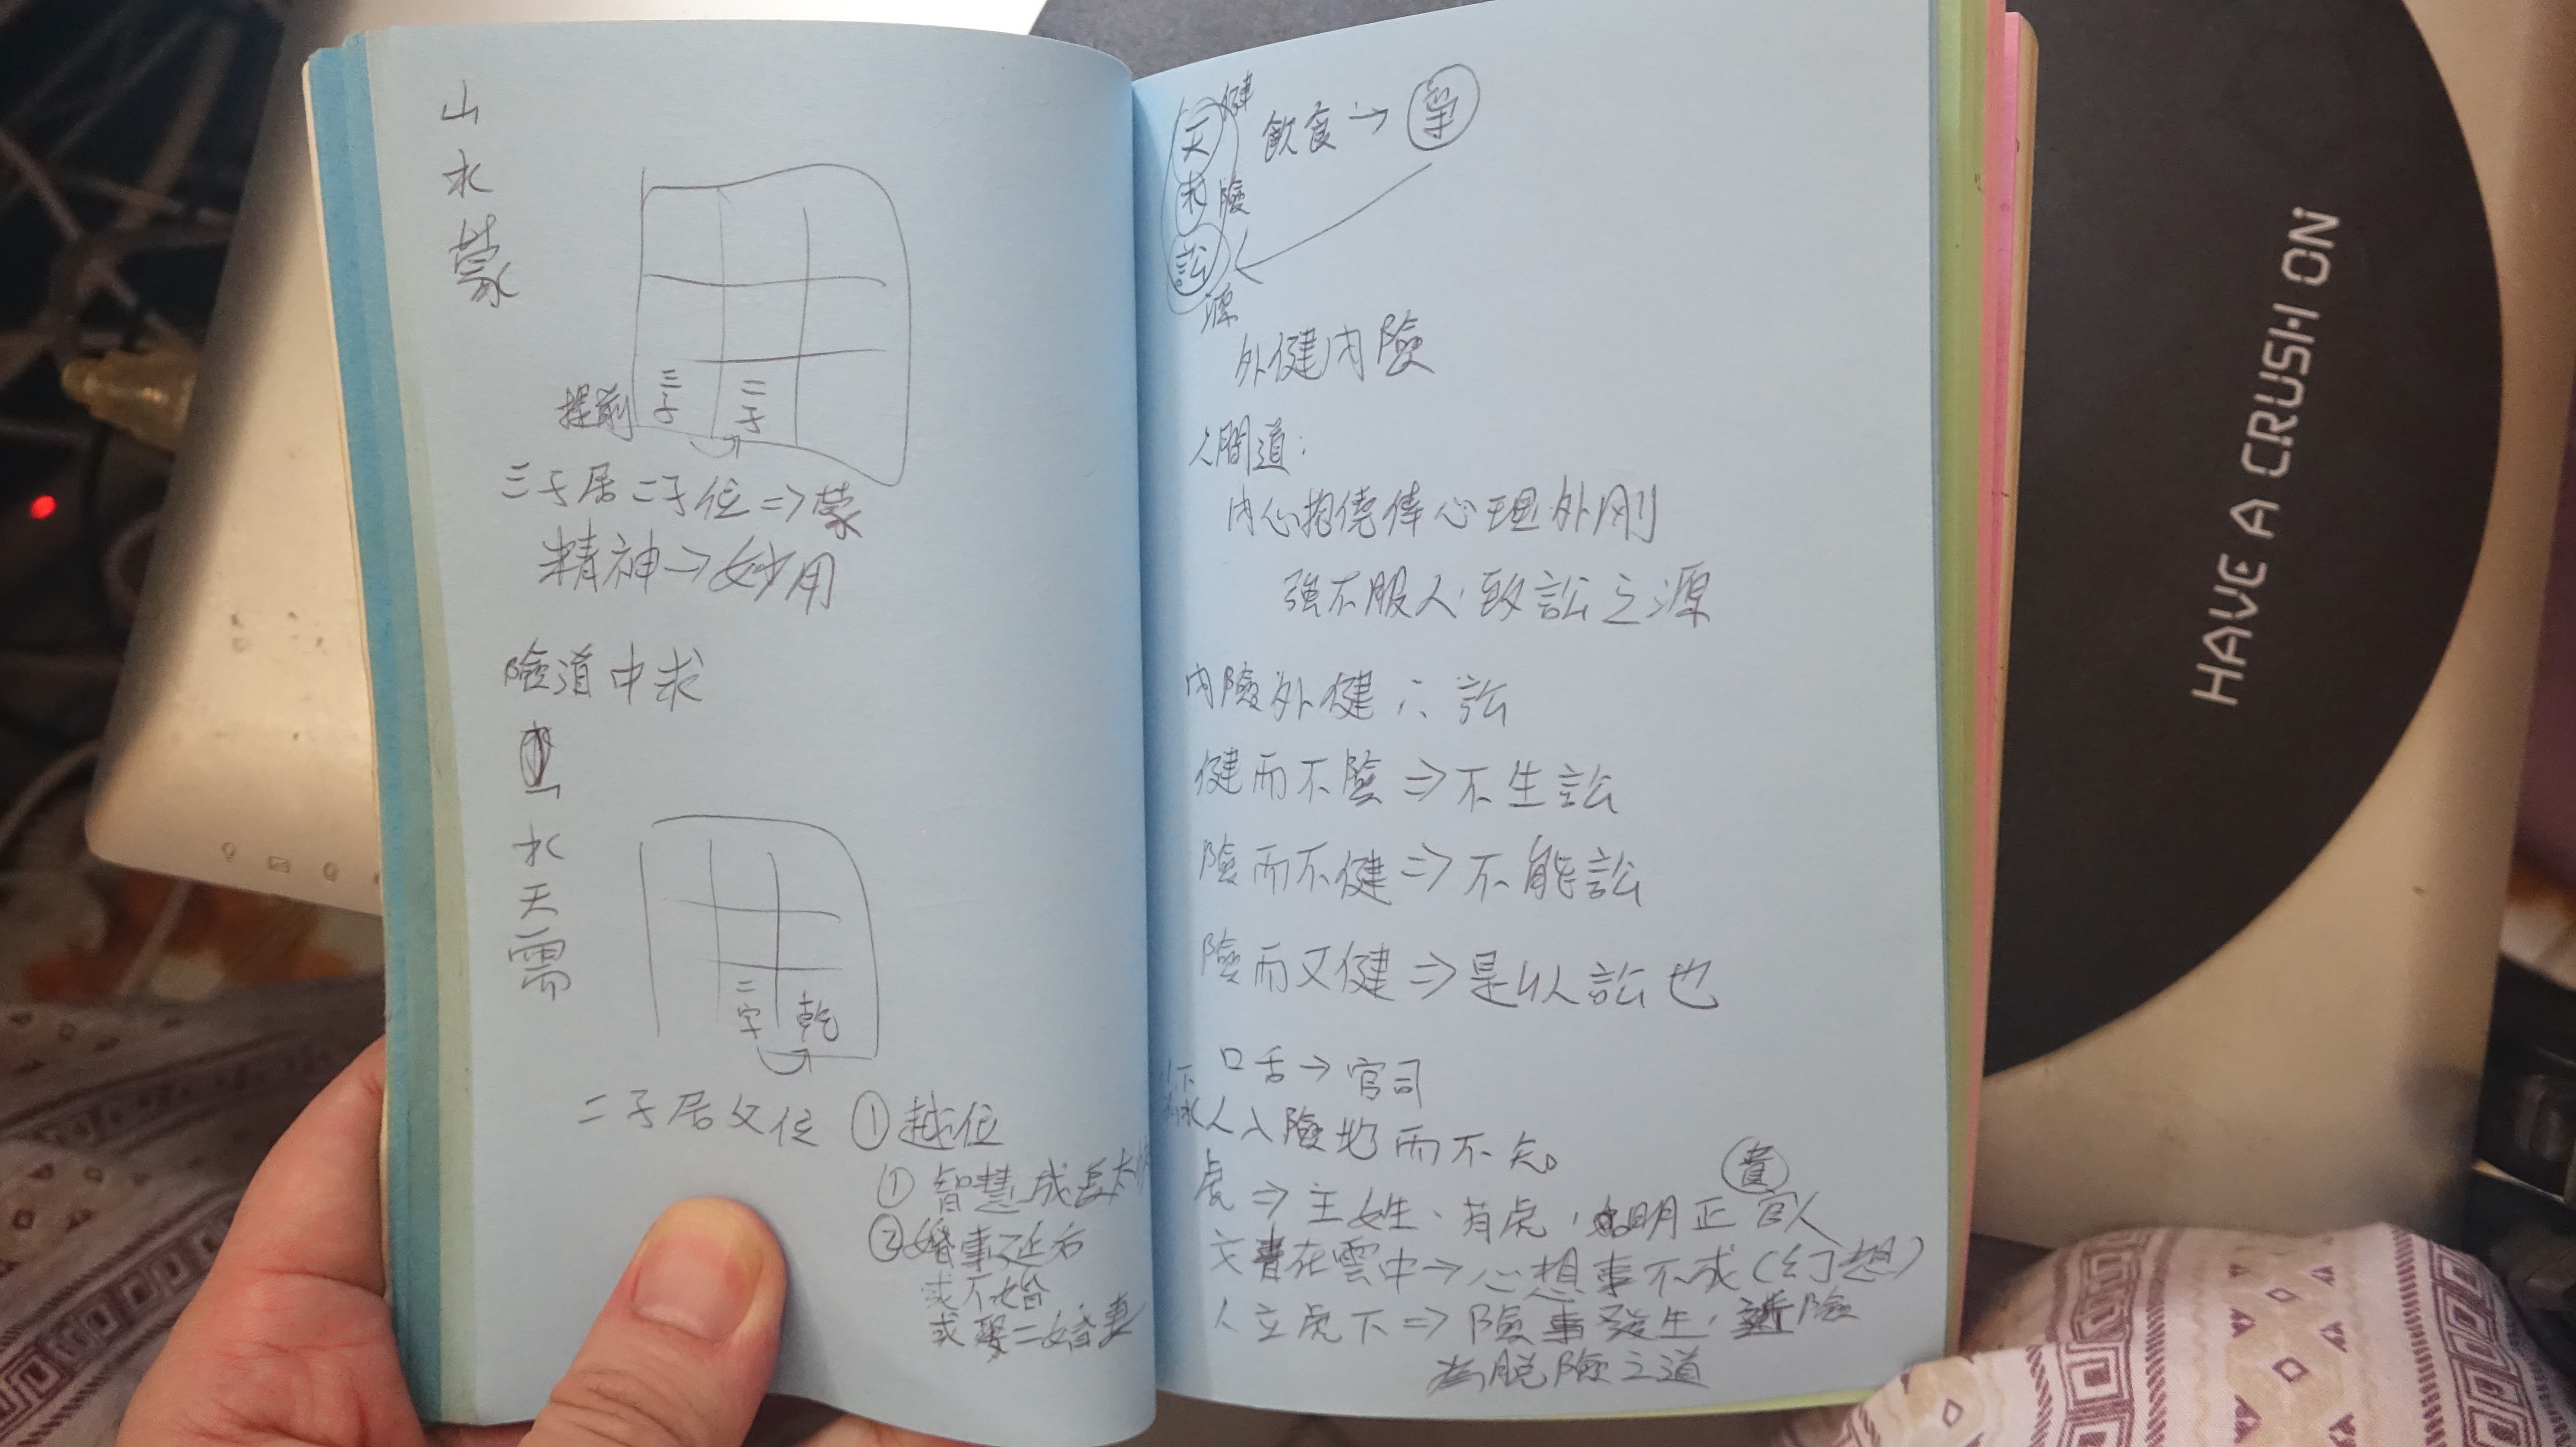 山
水
蒙
提前
三子
二子
三子居二子位⇒蒙
精神⇒妙用
險道中求
水
天
需
二字
乾
二子居父位 ①越位
①智慧成長太
②婚事延后
或不婚
或娶二婚妻
天 健
水 險
訟
源
飲食→爭
外健內險
人間道:
內心抱僥倖心理外剛
強不服人,致訟之源
內險外健∴訟
健而不險⇒不生訟
險而不健⇒不能訟
險而又健⇒是以訟也
口舌→官司
人入險地而不知。
虎⇒主姓、有虎,明正官人
貴
文書在雲中→心想事不成(幻想)
人立虎下⇒險事發生,避險
為脫險之道
HAVE A CRUSH ON